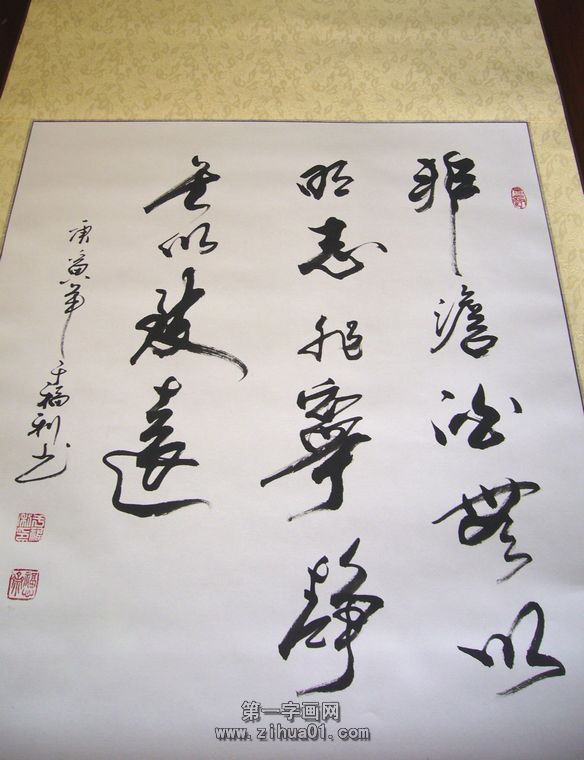 非澹泊無以
明志非寧靜
無以致遠
庚寅年
福利书
第一字画网
www.zihua01.com